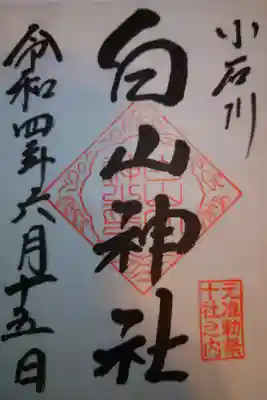 小石川
白山神社
元准勅祭
十社之内
令和四年六月十五日